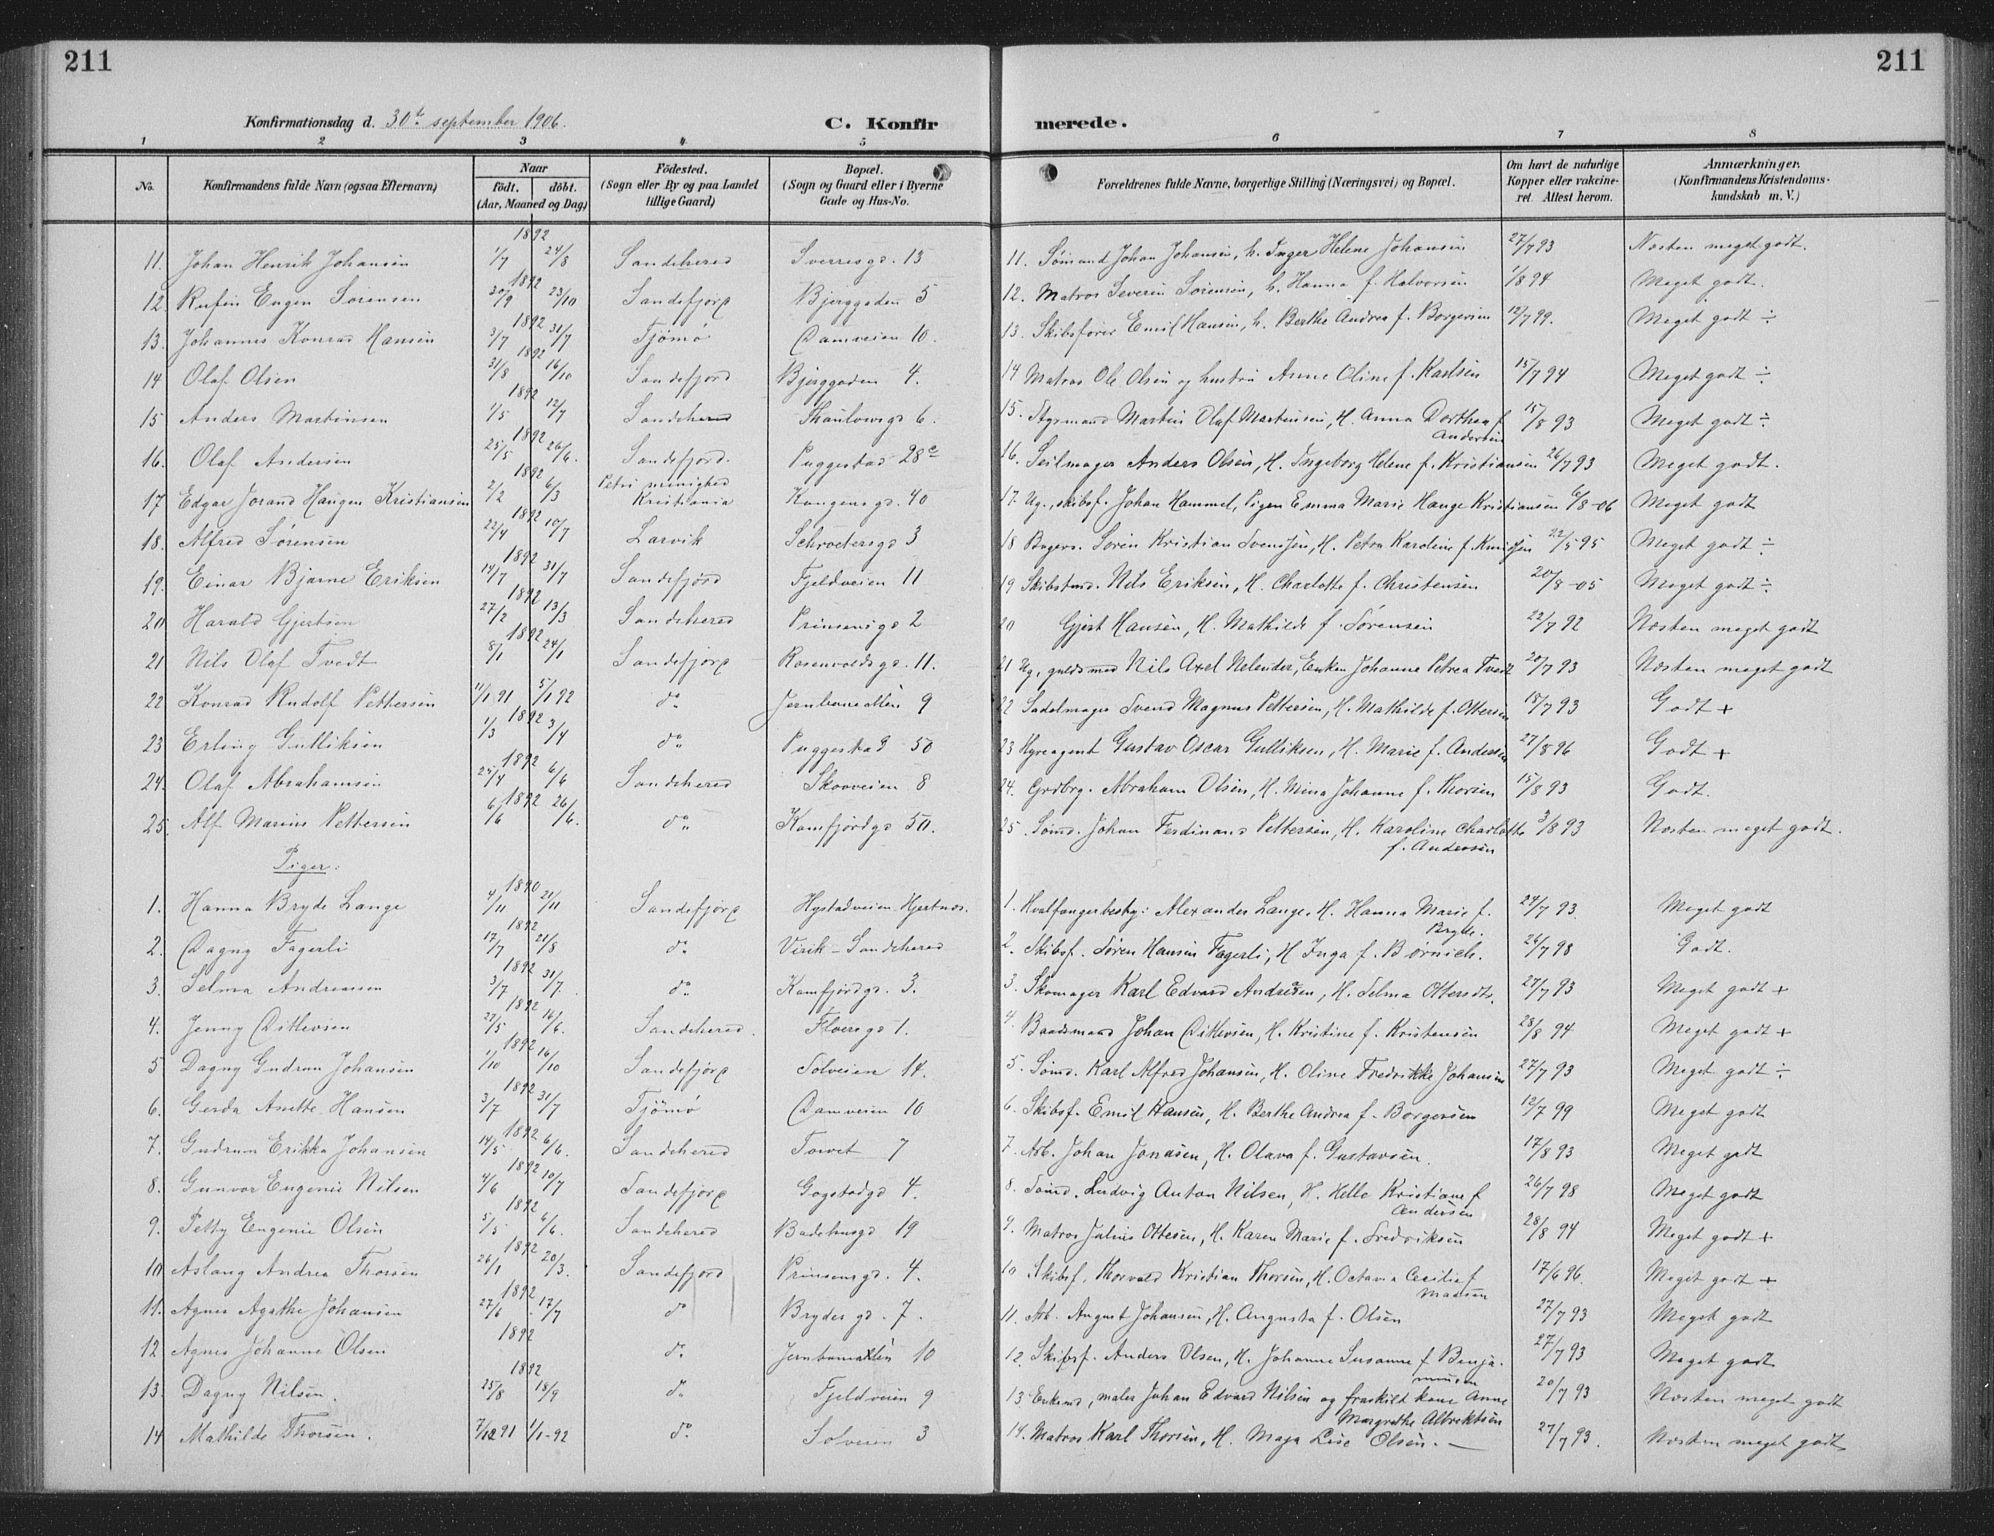 211
211
Konfirmationsdag d. 30te september 1906.
C. Konfirmerede.
1 2 3 4 5 6 7 8
No. Konfirmandens fulde Navn (ogsaa Efternavn) Naar født. døbt. (Aar, Maaned og Dag) Födested. (Sogn eller By og paa Landet tillige Gaard) Bopæl. (Sogn og Gaard eller i Byerne Gade og Hus-No. Forældrenes fulde Navne, borgerlige Stilling (Næringsvei) og Bopæl. Om havt de naturlige Kopper eller vakcineret. Attest herom. Anmærkninger. (Konfirmandens Kristendomskundskab m. V.)
11. Johan Henrik Johansen 1892 1/7 24/8 Sandeherred Sverresgd. 13 11. Sømand Johan Johansen, h. Inger Helene Johansen 27/7 93 Næsten meget godt.
12. Rufin Eugen Sørensen 1892 30/9 23/10 Sandefjord Bjerggaden 5 12. Matros Severin Sørensen, h. Hanna f. Halvorsen 1/8 94 Meget godt.
13. Johannes Konrad Hansen 1892 3/7 31/7 Tjømø Damveien 10. 13. Skibsfører Emil Hansen, h. Berthe Andrea f. Borgersen 12/7 99. Meget godt ÷
14 Olaf Olsen 1892 31/8 16/10 Sandefjord Bjerggaden 4. 14 Matros Ole Olsen og hustru Anne Oline f. Karlsen 15/7 94 Meget godt ÷
15 Anders Martinsen 1892 1/5 12/7 Sandeherred Thaulowsgd 6. 15. Styrmand Martin Olaf Martinsen, H. Anna Dorthea f. Andersen 15/8 93 Meget godt ÷
16. Olaf Andersen 1892 25/5 26/6. Sandefjord. Puggestad 28c 16. Seilmager Anders Olsen, H. Ingeborg Helene f. Kristiansen 26/7 93 Meget godt.
17 Edgar Jorand Haugen Kristiansen 1892 2/2 6/3 Petri menighed Kristiania Kongensgd. 40 17. Ug., skibsf. Johan Hammel, Pigen Emma Marie Hauge Kristiansen 6/8-06 Meget godt
18. Alfred Sørensen 1892 22/4 10/7 Larvik Schrøetersgd 3 18 Bogero. Søren Kristian Svendsen, H. Petra Karoline f. Knudsen 22/5 95 Meget godt ÷
19. Einar Bjarne Eriksen 1892 14/7 31/7 Sandefjord Fjeldveien 11 19 Skibstmd. Nils Eriksen, H. Charlotte f. Christensen 20/8-05 Meget godt ÷
20 Harald Gjertsen 1892 27/2 13/3 Sandeherred Prinsensgd 2 20 Gjert Hansen, H. Mathilde f. Sørensen 22/7 92 Næsten meget godt
21 Nils Olaf Tvedt 1892 8/1 24/1 Sandefjord Rosenvoldsgd. 11. 21 Ug, guldsmed Nils Axel Melender, Enken Johanne Petrea Tvedt 20/7 93 Næsten meget godt
22 Konrad Rudolf Pettersen 11/1 91 5/1 92 do Jernbanealleen 9 22 Sadelmager Svend Magnus Pettersen, H. Mathilde f. Ottersen 18/7 93 Godt +
23 Erling Gulliksen 1892 1/3 3/4 do Puggestad 50 23 Hyreagent Gustav Oscar Gulliksen, H. Marie f. Andersen 27/8 96 Godt +
24. Olaf Abrahamsen 1892 24/4 6/6 Sandeherred Skovveien 8 24. Grdbrg. Abraham Olsen, H. Mina Johanne f. Thorsen 15/8 93 Godt.
25. Alf Marius Pettersen 1892 6/6 26/6. do Kamfjordgd 50. 25. Sømd. Johan Ferdinand Pettersen, H. Karoline Charlotte f. Andersen 3/8 93 Næsten meget godt.
Piger:
1. Hanna Bryde Lange 1890 4/11 21/11 Sandefjord Hystadveien. Hjertnes. 1. Hvalfangerbesty: Alexander Lange, H. Hanna Marie f. Bryde. 24/7 93. Meget godt
2. Dagny Fagerli 1892 17/7 21/8 do Virik-Sandeherred 2. Skibsf. Søren Hansen Fagerli, H Inga f. Børnich. 26/7 98 Godt.
3. Selma Andreassen 1892 3/7 31/7. do Kamfjordgd. 3. 3. Skomager Karl Edvard Andresen, H. Selma Ottersdtr. 27/7 93 Meget godt +
4. Jenny Ditlevsen 1892 22/5 16/6. Sandeherred. Elversgd 1. 4. Baadsmand Johan Ditlevsen, H. Kristine f. Kristensen 23/8 94 Meget godt +
5 Dagny Gudrun Johansen 1892 1/10 16/10 Sandefjord Solveien 14. 5. Sømd. Karl Alfred Johansen, H. Oline Fredrikke Johansen 27/7 93 Meget godt ÷
6. Gerda Anette Hansen 1892 3/7 31/7 Tjømø Damveien 10 6. Skibsf. Emil Hansen, H. Berthe Andrea f. Borgersen 12/7 99 Meget godt
7. Gudrun Erikka Johansen 1892 14/5 6/6. Sandeherred Torvet 7 7. Arb. Johan Jonasen, H. Olava f. Gustavsen. 17/8 93 Meget godt
8. Gunvor Eugenie Nilsen 1892 4/6 10/7 Sandefjord Gogstadgd 4. 8. Sømd. Ludvig Anton Nilsen, H. Helle Kristiane f Andersen 26/7 98 Meget godt
9. Petty Eugenie Olsen 1892 5/5 6/6. Sandeherred Badehusgd 19 9. Matros Julius Ottesen, H. Karen Marie f. Fredriksen 28/8 94 Meget godt +
10 Aslaug Andrea Thorsen 1892 26/1 20/3. Sandefjord Prinsensgd. 4. 10 Skibsf. Thorvald Kristian Thorsen, H. Octavia Cecilie f Madsen 17/6 96. Meget godt +
11. Agnes Agathe Johansen 1892 27/6 17/7 do Brydes gd. 7. 11. Arb. August Johansen, H. Augusta f. Olsen 27/7 93 Meget godt
12 Agnes Johanne Olsen 1892 do Jernbanealléen 10 12. Skibsf. Anders Olsen, H. Johanne Susanne f Benjaminsen 27/7 93 Meget godt
13. Dagny Nilsen. 1892 25/8 18/9 do Fjeldveien 9 13 Enkemd, maler Johan Edvard Nilsen og fraskilt kone Anne Margrethe Albrektsen 20/7 93 Næsten meget godt
14 Mathilde Thorsen. 7/12 91 1/1-92 do Solveien 3 14. Matros Karl Thorsen, H. Maja Lise Olsen. — 27/7 93. Næsten meget godt